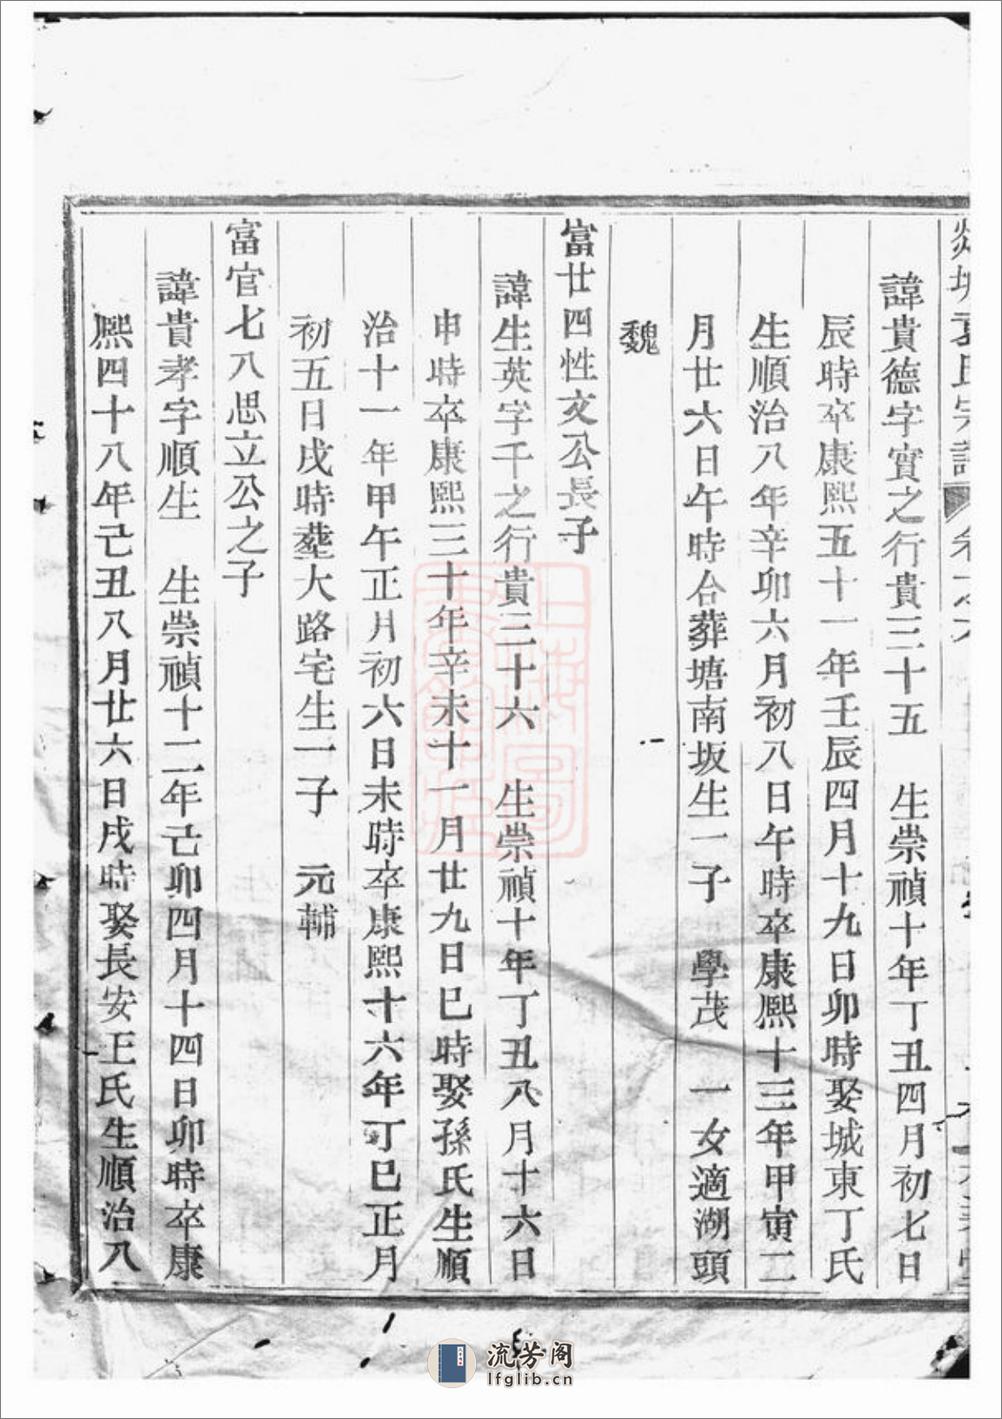 氏宗譜
諱貴德字實之行貴三十五 生崇禎十年丁丑四月初七日
辰時卒康熙五十一年壬辰四月十九日卯時娶城東丁氏
生順治八年辛卯六月初八日午時卒康熙十三年甲寅二
月廿六日午時合葬塘南坂生一子 學茂 一女適湖頭
魏
富廿四性文公長子
諱生英字千之行貴三十六 生崇禎十年丁丑八月十六日
申時卒康熙三十年辛未十一月廿九日巳時娶孫氏生順
治十一年甲午正月初六日未時卒康熙十六年丁巳正月
初五日戌時塟大路宅生一子 元輔
富官七八思立公之子
諱貴孝字順生 生崇禎十二年己卯四月十四日卯時卒康
熙四十八年己丑八月廿六日戌時娶長安王氏生順治八
流芳阁
lfglib.cn